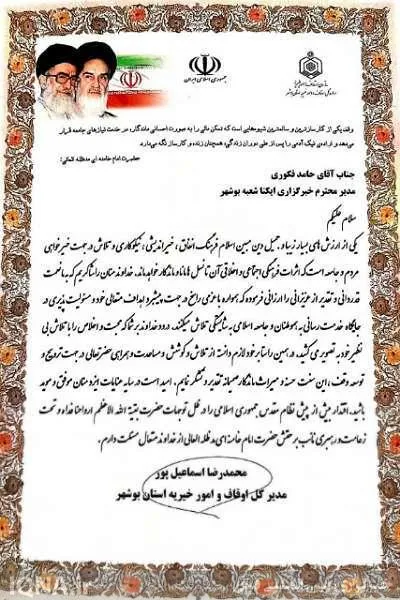 جمهوری اسلامی ایران
وقف یکی از کارسازترین و سالمترین شیوه‌هایی است که تمکن مالی را به صورت احسانی ماندگار، در خدمت نیازهای جامعه قرار
می‌دهد و اراده‌ی نیک آدمی را پس از طی دوران زندگی، همچنان زنده و کارساز نگه می‌دارد.
حضرت امام خامنه ای مدظله العالی
جناب آقای حامد فکوری
مدیر محترم خبرگزاری ایکنا شعبه بوشهر
سلام علیکم
یکی از ارزش های بسیار زیبا و جمیل دین مبین اسلام فرهنگ انفاق، خیراندیشی، نیکوکاری و تلاش در جهت خیرخواهی
مردم و جامعه است که اثرات فرهنگی اجتماعی و اخلاقی آن تا نسل ها مانا و ماندگار خواهد ماند. خداوند منان را شاکریم که بضاعت
قدردانی و تقدیر از عزیزانی را ارزانی فرموده که همواره با عزمی راسخ در جهت پیشبرد اهداف متعالی خود و مسئولیت پذیری در
جایگاه خدمت رسانی به هموطنان و جامعه اسلامی به شایستگی تلاش میکنند. درود خداوند بر شما که محبت و اخلاص را با تلاش بی
نظیر خود به تصویر می کشید، در همین راستا بر خود لازم دانسته از تلاش و کوشش و مساعدت و همراهی حضرتعالی در جهت ترویج و
توسعه وقف، این سنت حسنه و میراث ماندگار صمیمانه تقدیر و تشکر نمایم. امید است در سایه عنایات ایزد منان موفق و موید
باشید. اقتدار بیش از پیش نظام مقدس جمهوری اسلامی را در ظل توجهات حضرت بقیة الله الاعظم ارواحنا فداه و تحت
زعامت و رهبری نائب برحقش حضرت امام خامنه ای مدظله العالی از خداوند متعال مسئلت دارم.
محمدرضا اسماعیل پور
مدیر کل اوقاف و امور خیریه استان بوشهر
IQNA.ir